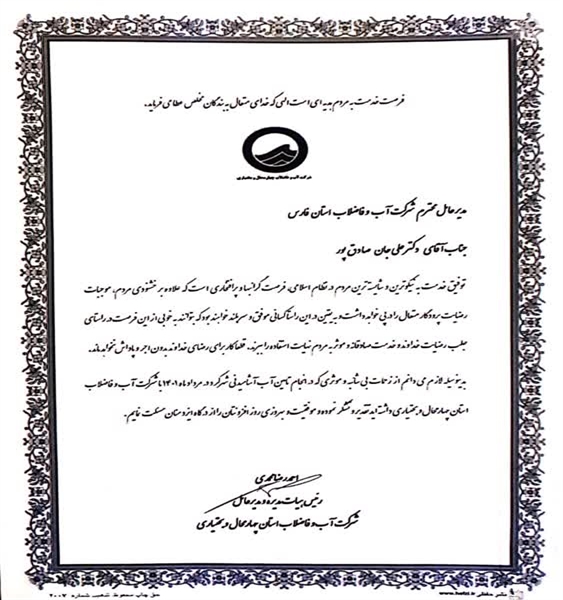 فرصت خدمت به مردم هدیه ای است الهی که خدای متعال به بندگان مخلص عطا می فرماید.
شرکت آب و فاضلاب چهارمحال و بختیاری
مدیرعامل محترم شرکت آب و فاضلاب استان فارس
جناب آقای دکتر علی جان صادق پور
توفیق خدمت به نیکوترین و شایسته ترین مردم در نظام اسلامی، فرصت گرانبها و پر افتخاری است که علاوه بر خشنودی مردم، موجبات
رضایت پروردگار متعال را در پی خواهد داشت و به یقین در این راستا کسانی موفق و سربلند خواهند بود که بتوانند به خوبی از این فرصت در راستای
جلب رضایت خداوند و خدمت صادقانه و موثر به مردم نهایت استفاده را ببرند، قطعا کار برای رضای خداوند بدون اجر و پاداش نخواهد ماند.
بدینوسیله لازم می دانم از زحمات بی شائبه و موثری که در انجام تامین آب آشامیدنی شهرکرد در مرداد ماه ۱۴۰۱ با شرکت آب و فاضلاب
استان چهارمحال و بختیاری داشته اید تقدیر و تشکر نموده و موفقیت و بهروزی روز افزونتان را از درگاه ایزد منان مسئلت نمایم.
احمدرضا محمدی
رئیس هیات مدیره و مدیرعامل
شرکت آب و فاضلاب استان چهارمحال و بختیاری
حق چاپ محفوظ شعیب شماره ۲۰۰۷
www.hefzi.ir